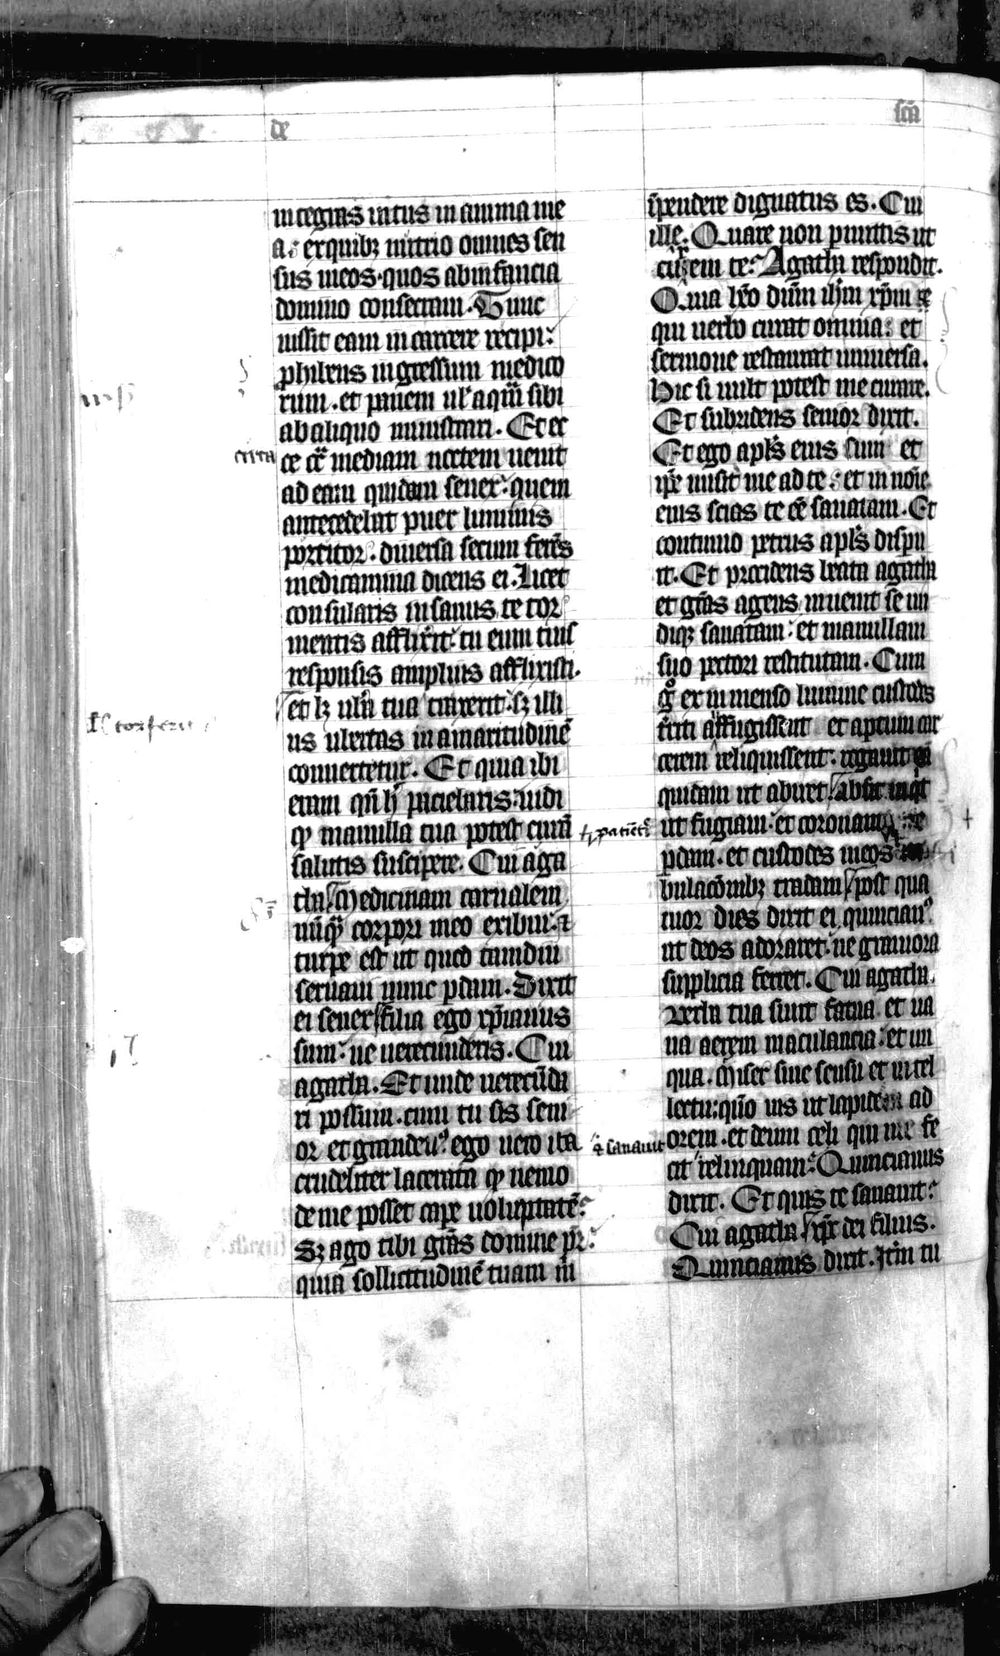 de
sc̄a
integras intus in anima me
a: ex quibꝫ nutrio omnes sen
sus meos· quos ab infancia
domino consecraui. Tunc
iussit eam in carcere recipi:
prohibens ingressum medico
rum . et panem uł aquā sibi
ab aliquo ministrari. Et ec
circa
ce cc̄ mediam noctem uenit
ad eam quidam senex: quem
antecedebat puer luminis
portitor. diuersa secum ferēs
medicamina dicens ei. Licet
consularis insanus te tor
mentis afflixit: tu eum tuis
responsis amplius afflixisti.
et lꝫ ub̄a tua
torserit
sꝫ illi
us ubertas in amaritudinē
conuertetur. Et quia ibi
eram qn̄ h̄ pacielaris: uidi
patieb̄is
qꝫ mamilla tua potest curā
salutis suscipere. Cui aga
tha Medicinam carnalem
nūqꝫ corpori meo exibui: ⁊
turpe est ut quod tamdiu
seruaui nunc ꝑdam. Dixit
ei senex filia ego xp̄ianus
sum: ne uerecunderis. Cui
agatha. Et unde uerecūda
ri possum . cum tu sis seni
or et grandeuꝰ ego uero ita
crudeliter lacerata qꝫ nemo
de me posset cape uoluptatē:
Sꝫ ago tibi grās domine pr̄:
quia sollicitudinē tuam m̄
īpendere dignatus es. Cui
ille. Quare non pmittis ut
curem te: Agatha respondit.
Quia hēo dūm ihm xp̄m
qui uerbo curat omnia: et
sermone restaurat uniuersa.
Hic si uult potest me curare.
Et subridens senior dixit.
Et ego apłs eius sum et
ipe misit me ad te: et in noīe
eius scias te ēe sanatam. Et
continuo petrus apłs dispa
it. Et procidens beata agatha
et grās agens inuenit se un
diqꝫ sanatam: et mamillam
suo pectori restitutam. Cum
gͦ ex inmenso lumine custodes
t̄riti affugissent et aptum car
cerem reliquissent: rogauit eā
quidam ut abiret absit inqͥt
ut fugiam: et coronam
ꝑdam . et custodes meos
bulacōnibꝫ tradam post qua
tuor dies dixit ei quincianꝰ
ut deos adoraret: ne grauiora
supplicia ferret. Cui agatha.
Verba tua sunt fatua et ua
na aerem maculancia: et ini
qua. Miser sine sensu et intel
lectu: quō uis ut lapidem ad
orem . et deum celi qui me fe
⁊ sanauit
cit relinquam: Quincianus
dixit. Et quis te sanauit:
Cui agatha xp̄c dei filius.
Quincianus dixit. Itm̄ tu